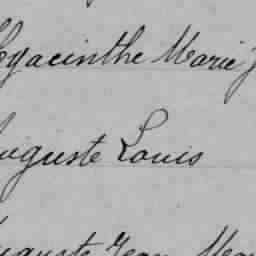 Hyacinthe Marie J
Auguste Louis
Auguste Jean Mar